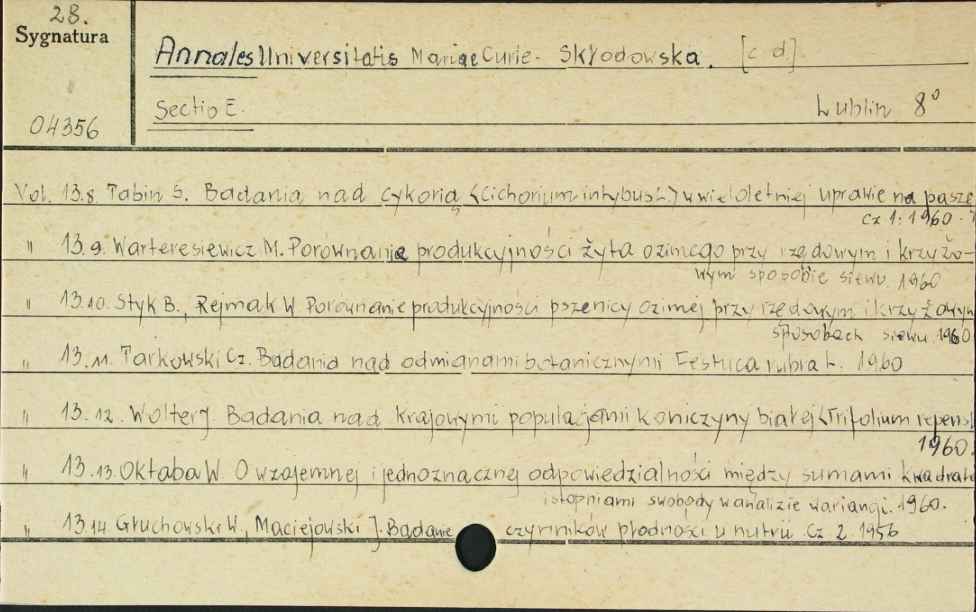 28.
Sygnatura
04356
Annales Universitatis Mariae Curie - Skłodowska. [c d].
Sectio E. Lublin 8°
Vol. 13.8. Tabin S. Badania nad cykorią (Cichorium intybus L.) w wieloletniej uprawie na paszę
cz 1: 1960.
" 13.9. Warteresiewicz M. Porównanie produkcyjności żyta ozimego przy rzędowym i krzyżo-
wym sposobie siewu. 1960
" 13.10. Styk B., Rejmak W. Porównanie produkcyjności pszenicy ozimej przy rzędowym i krzyżowym
sposobach siewu. 1960.
" 13.11. Tarkowski Cz. Badania nad odmianami botanicznymi Festuca rubra L. 1960
" 13.12. Wolter J. Badania nad krajowymi populacjami koniczyny białej (Trifolium repens
1960.
" 13.13. Oktaba W. O wzajemnej i jednoznacznej odpowiedzialności między sumami kwadrató
i stopniami swobody w analizie wariancji. 1960.
" 13.14. Głuchowski W., Maciejowski J. Badanie czynników płodności u nutrii. Cz 2. 1956